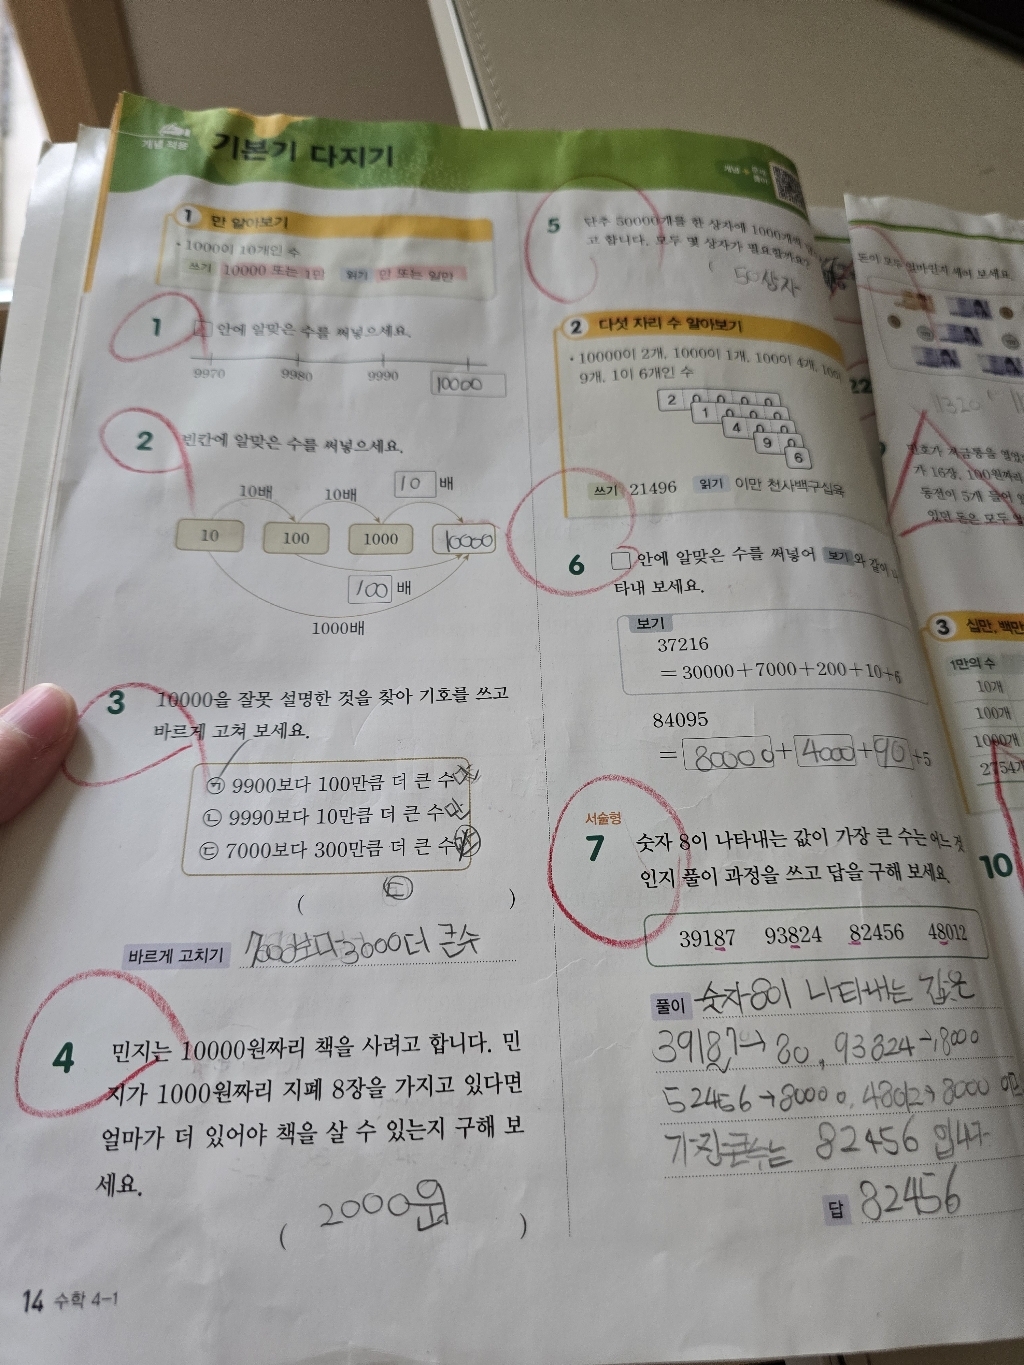 개념 적용
기본기 다지기
1 만 알아보기
• 1000이 10개인 수
쓰기 10000 또는 1만 읽기 만 또는 일만
1 □ 안에 알맞은 수를 써넣으세요.
9970 9980 9990 10000
2 빈칸에 알맞은 수를 써넣으세요.
10배 10배 10 배
10 100 1000 10000
100 배
1000배
3 10000을 잘못 설명한 것을 찾아 기호를 쓰고
바르게 고쳐 보세요.
㉠ 9900보다 100만큼 더 큰 수
㉡ 9990보다 10만큼 더 큰 수
㉢ 7000보다 300만큼 더 큰 수
( ㉢ )
바르게 고치기 7000보다 3000 더 큰수
4 민지는 10000원짜리 책을 사려고 합니다. 민
지가 1000원짜리 지폐 8장을 가지고 있다면
얼마가 더 있어야 책을 살 수 있는지 구해 보
세요.
( 2000원 )
14 수학 4-1
5 단추 50000개를 한 상자에 1000개씩
고 합니다. 모두 몇 상자가 필요할까요?
( 50상자
2 다섯 자리 수 알아보기
• 10000이 2개, 1000이 1개, 100이 4개, 10이
9개, 1이 6개인 수
2 0 0 0 0
1 0 0 0
4 0 0
9 0
6
쓰기 21496 읽기 이만 천사백구십육
6 □ 안에 알맞은 수를 써넣어 보기 와 같이 나
타내 보세요.
보기
37216
= 30000+7000+200+10+6
84095
= 80000 + 4000 + 90 +5
서술형
7 숫자 8이 나타내는 값이 가장 큰 수는 어느 것
인지 풀이 과정을 쓰고 답을 구해 보세요.
39187 93824 82456 48012
풀이 숫자 8이 나타내는 값은
39187→80, 93824→8000
52456→80000, 48012→8000
가장큰수는 82456 입니다
답 82456
돈이 모두 얼마인지 세어 보세요
22
1320
가 16장, 100원짜리
동전이 5개 들어
있던 돈은 모두
3 십만, 백만
1만의 수
10개
100개
1000개
2754개
10